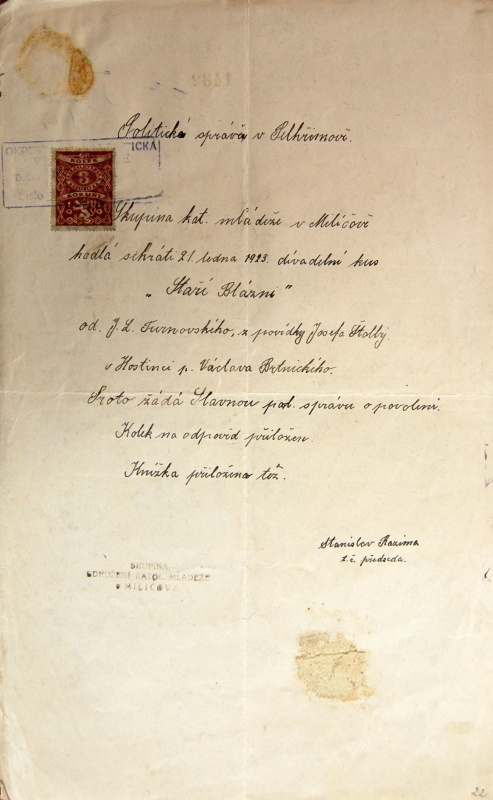 Politická správa v Pelhřimově.
OKRESNÍ
ICKÁ
Číslo
KOLEK
KORUNY
Skupina kat. mládeže v Milíčově
hodlá sehráti 21. ledna 1923. divadelní kus
„Staří Blázni"
od. J. L. Turnovského, z povídky Josefa Štolby.
v Hostinci p. Václava Brtnického.
Proto žádá Slavnou pol. správu o povolení.
Kolek na odpověd přiložen.
Knížka přiložena též.
Stanislav Razima
t.č. předseda.
SKUPINA
SDRUŽENÍ KATOL. MLÁDEŽE
MILÍČOVĚ
22